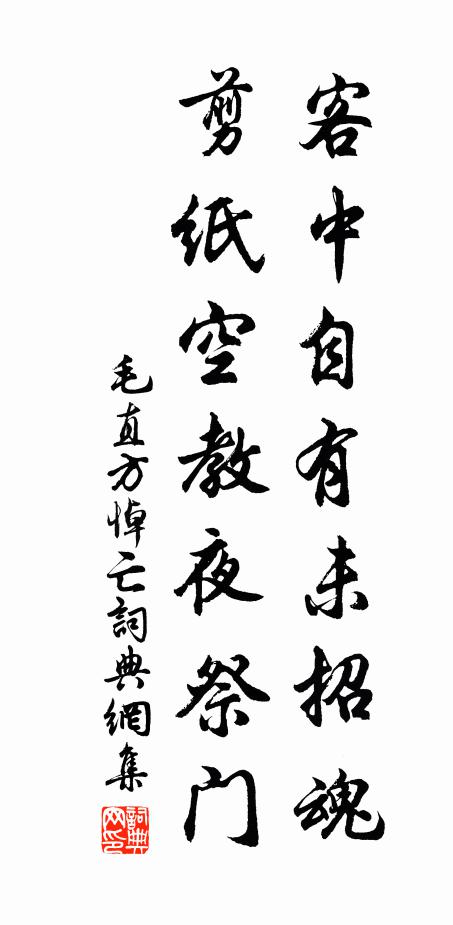 客中自有未招魂
剪紙空教夜祭門
毛直方悼亡詞典網集
詞典网印